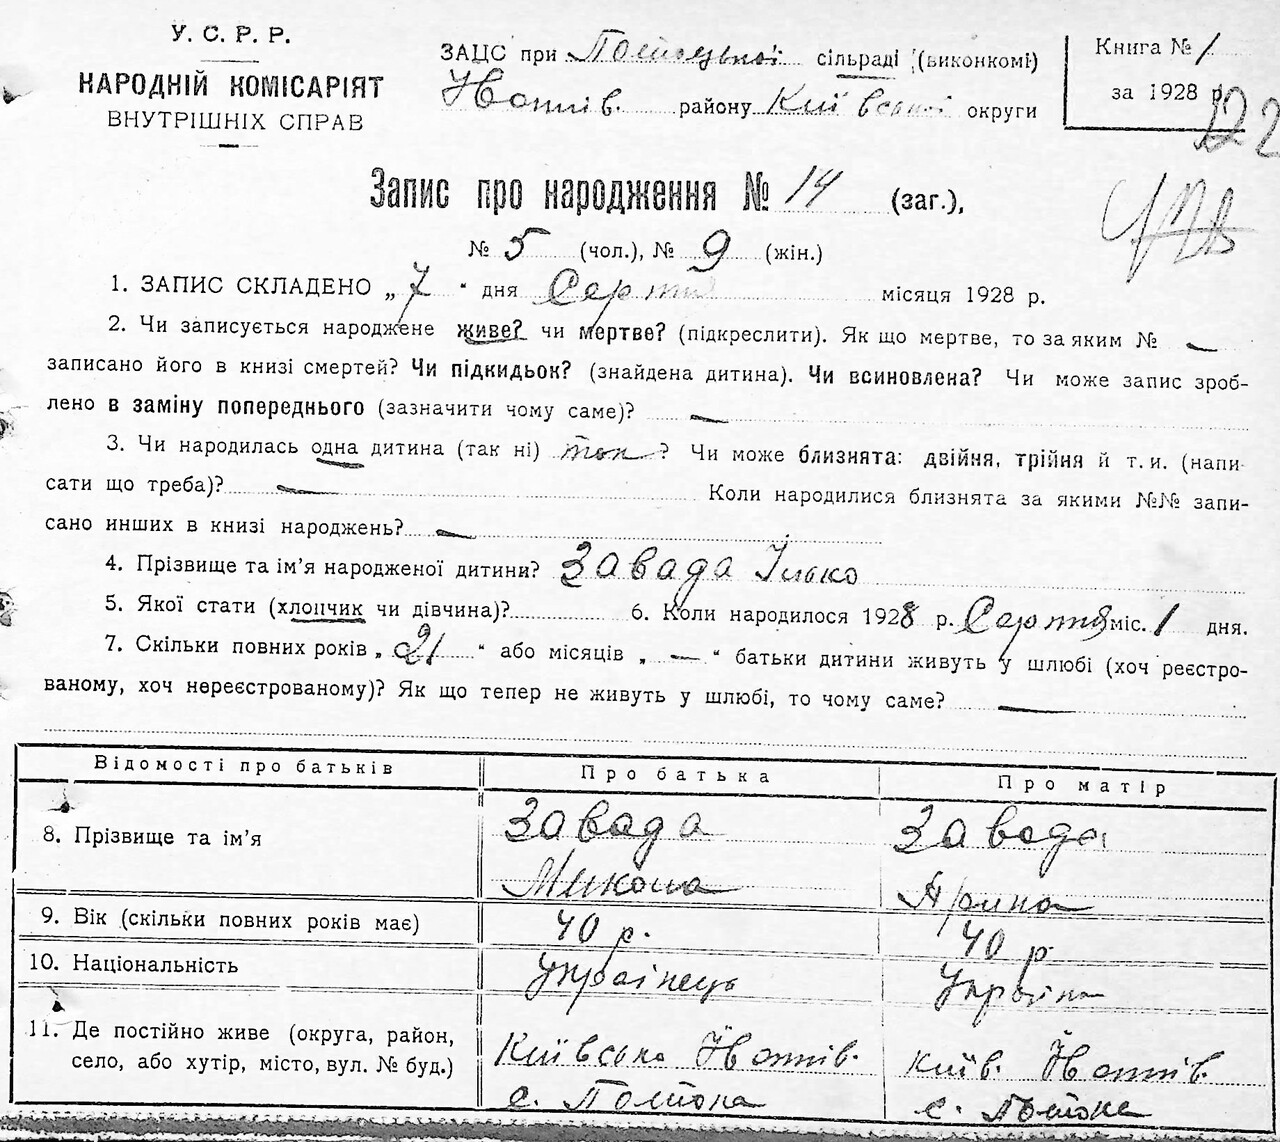 У. С. Р. Р.
НАРОДНІЙ КОМІСАРІЯТ
ВНУТРІШНІХ СПРАВ
ЗАЦС при сільраді (виконкомі)
району Київської округи
Книга № 1
за 1928 р.
122
Запис про народження № 14 (заг.),
№ 5 (чол.), № 9 (жін.)
1. ЗАПИС СКЛАДЕНО „ 7 " дня Серпня місяця 1928 р.
2. Чи записується народжене живе? чи мертве? (підкреслити). Як що мертве, то за яким № —
записано його в книзі смертей? Чи підкидьок? (знайдена дитина). Чи всиновлена? Чи може запис зроб-
лено в заміну попереднього (зазначити чому саме)? —
3. Чи народилась одна дитина (так ні) так ? Чи може близнята: двійня, трійня й т. и. (напи-
сати що треба)? — Коли народилися близнята за якими №№ запи-
сано инших в книзі народжень? —
4. Прізвище та ім'я народженої дитини? Завада Ілько
5. Якої стати (хлопчик чи дівчина)? 6. Коли народилося 1928 р. Серпня міс. 1 дня.
7. Скільки повних років „ 21 " або місяців „ — " батьки дитини живуть у шлюбі (хоч реєстро-
ваному, хоч нереєстрованому)? Як що тепер не живуть у шлюбі, то чому саме? —
Відомості про батьків Про батька Про матір
8. Прізвище та ім'я Завада Завада
Микола Ярина
9. Вік (скільки повних років має) 40 р. 40 р.
10. Національність Українець Українка
11. Де постійно живе (округа, район, Київська Київ.
село, або хутір, місто, вул. № буд.) с. с.